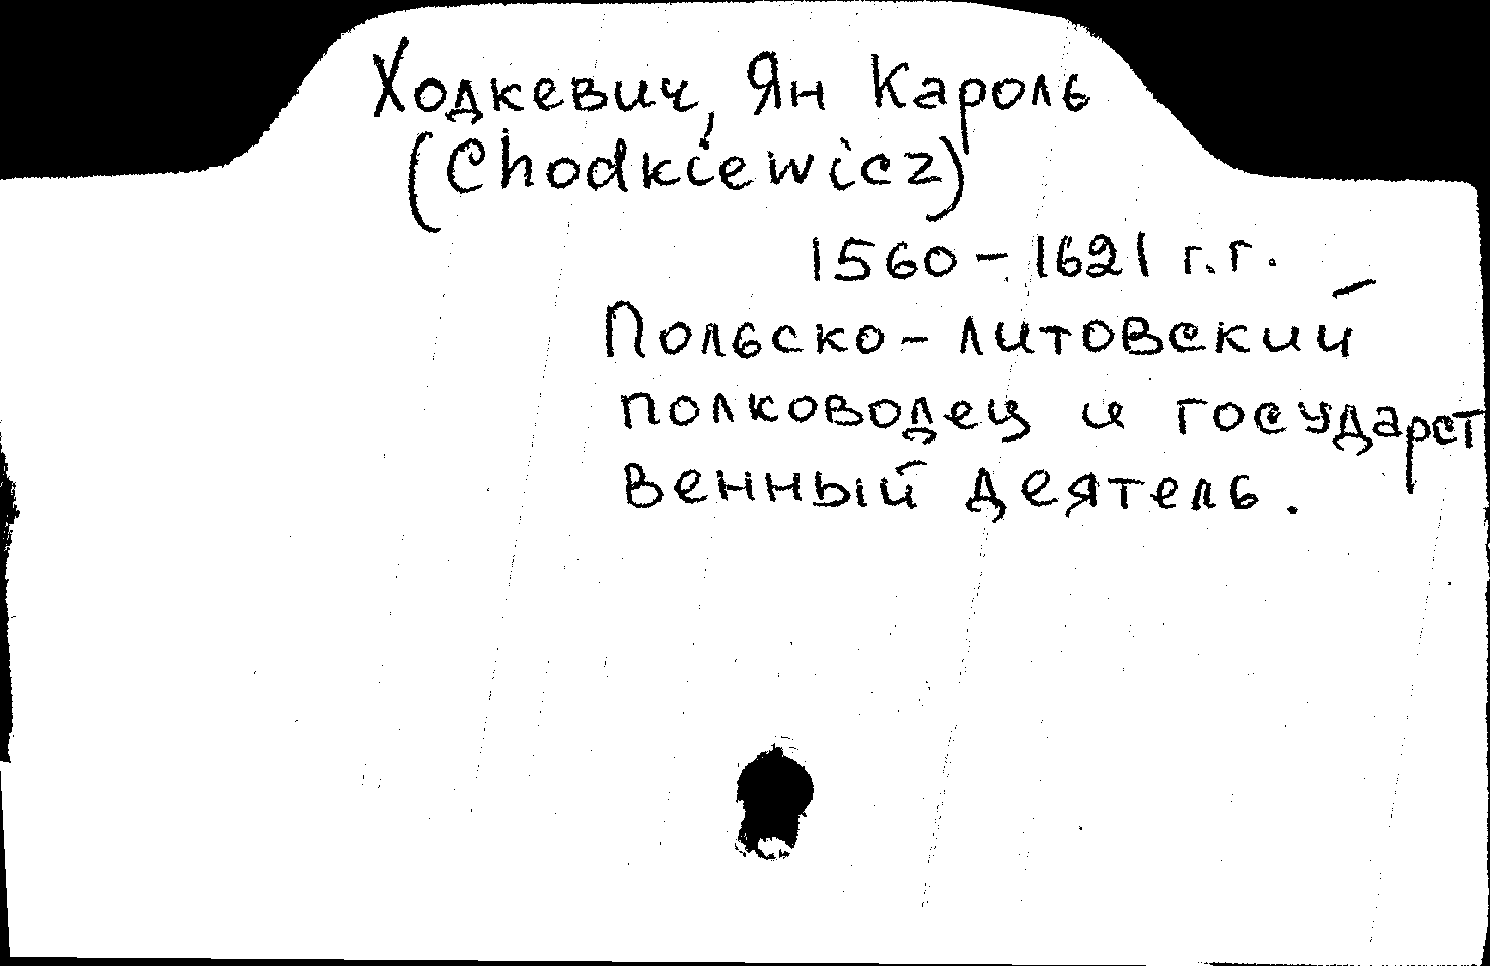 Ходкевич, Ян Кароль
(Chodkiewicz)
1560-1621 г.г.
Польско-литовский
полководец и государст
венный деятель.